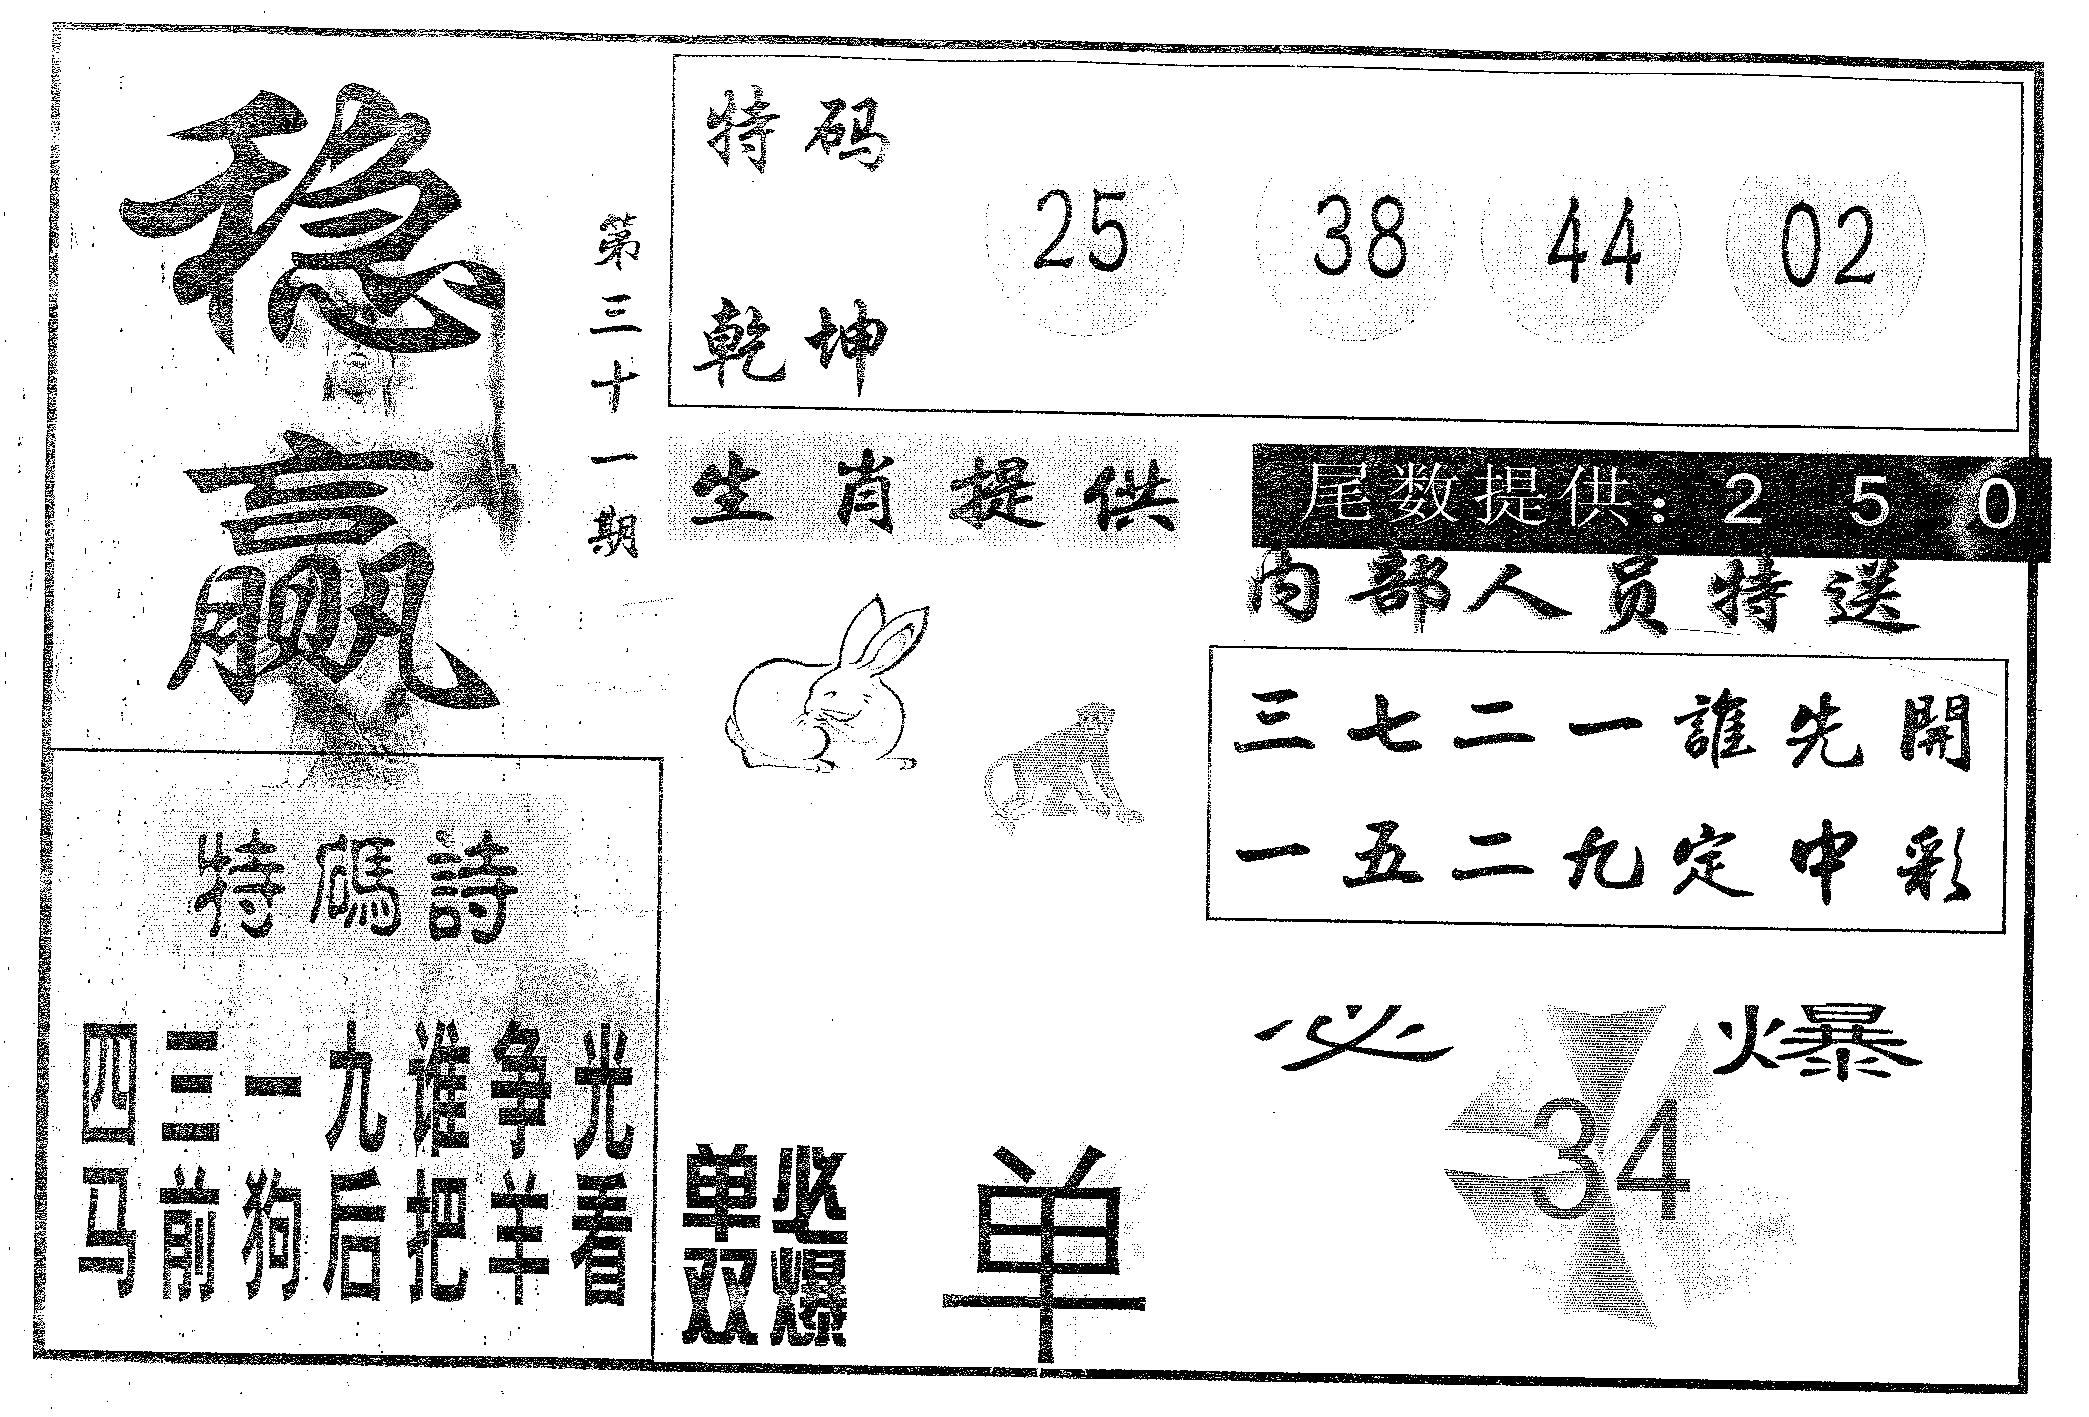 稳赢
第三十一期
特码
乾坤
25 38 44 02
生肖提供
尾数提供：2 5 0
内部人员特送
三七二一誰先開
一五二九定中彩
特碼詩
四三一九谁争光
马前狗后把羊看
单双
必爆
单
必爆
34